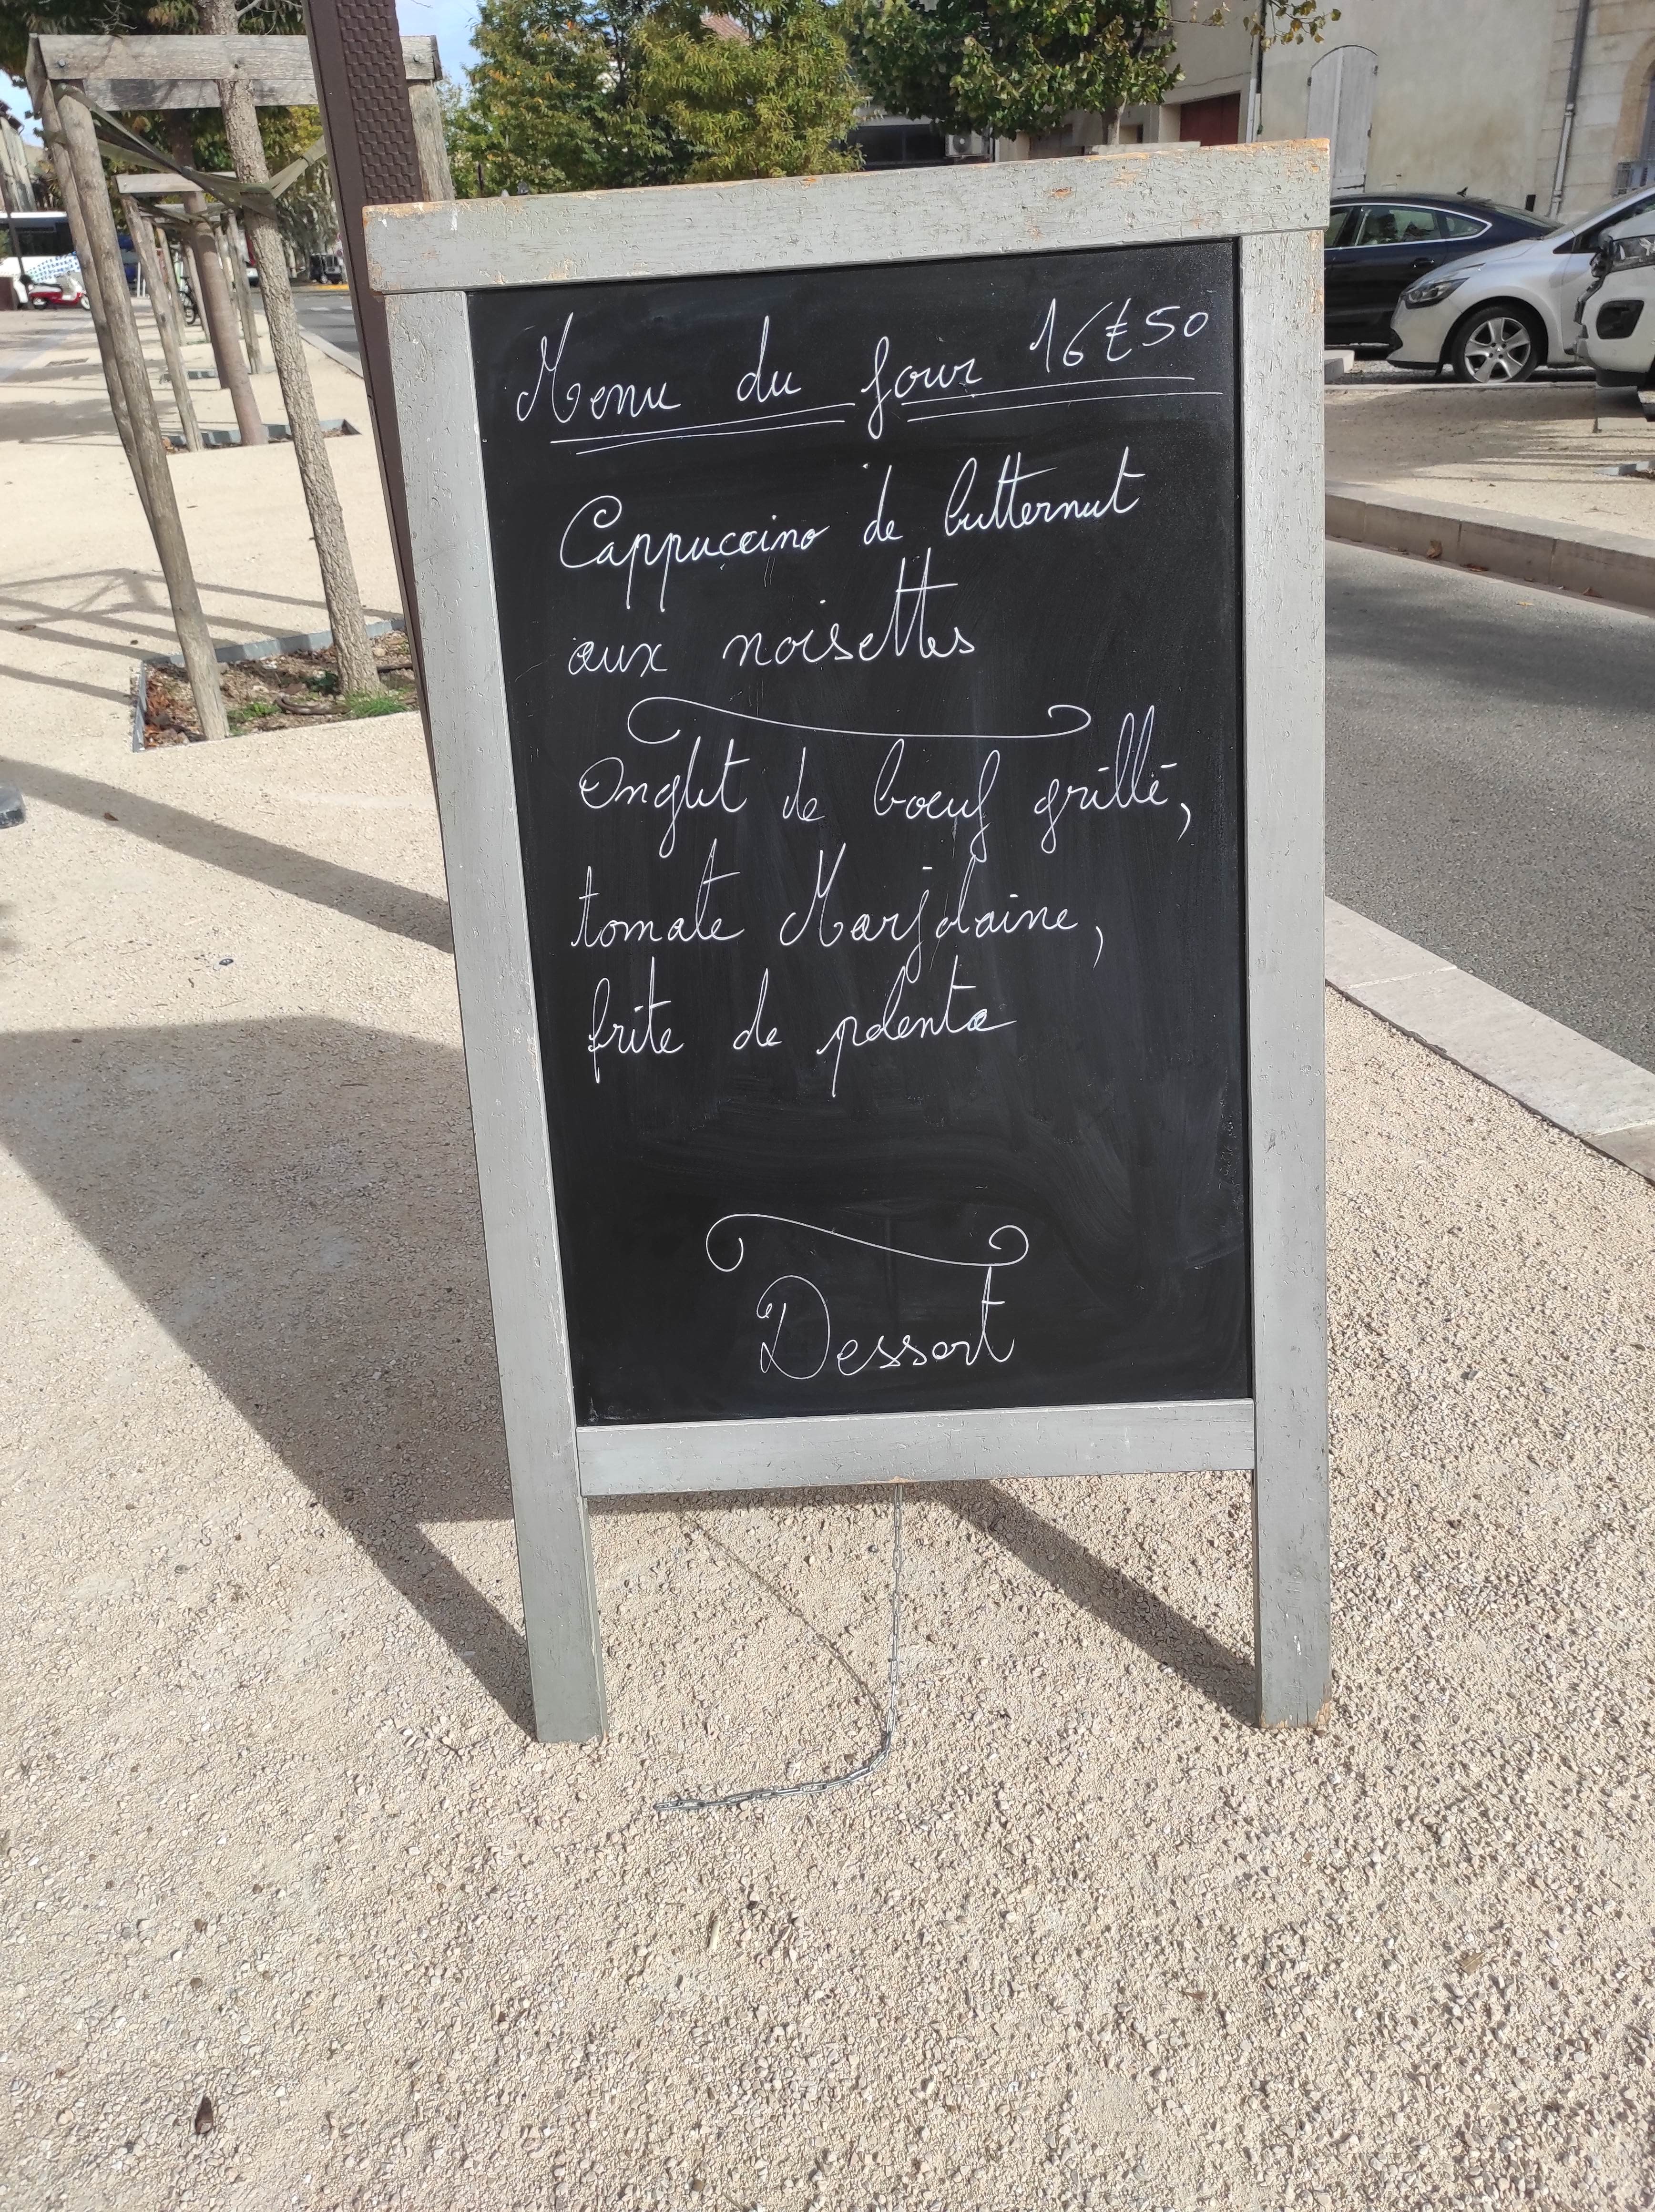 Menu du jour 16€50
Cappuccino de butternut
aux noisettes
Onglet de boeuf grillé,
tomate Marjolaine,
frite de polenta
Dessert